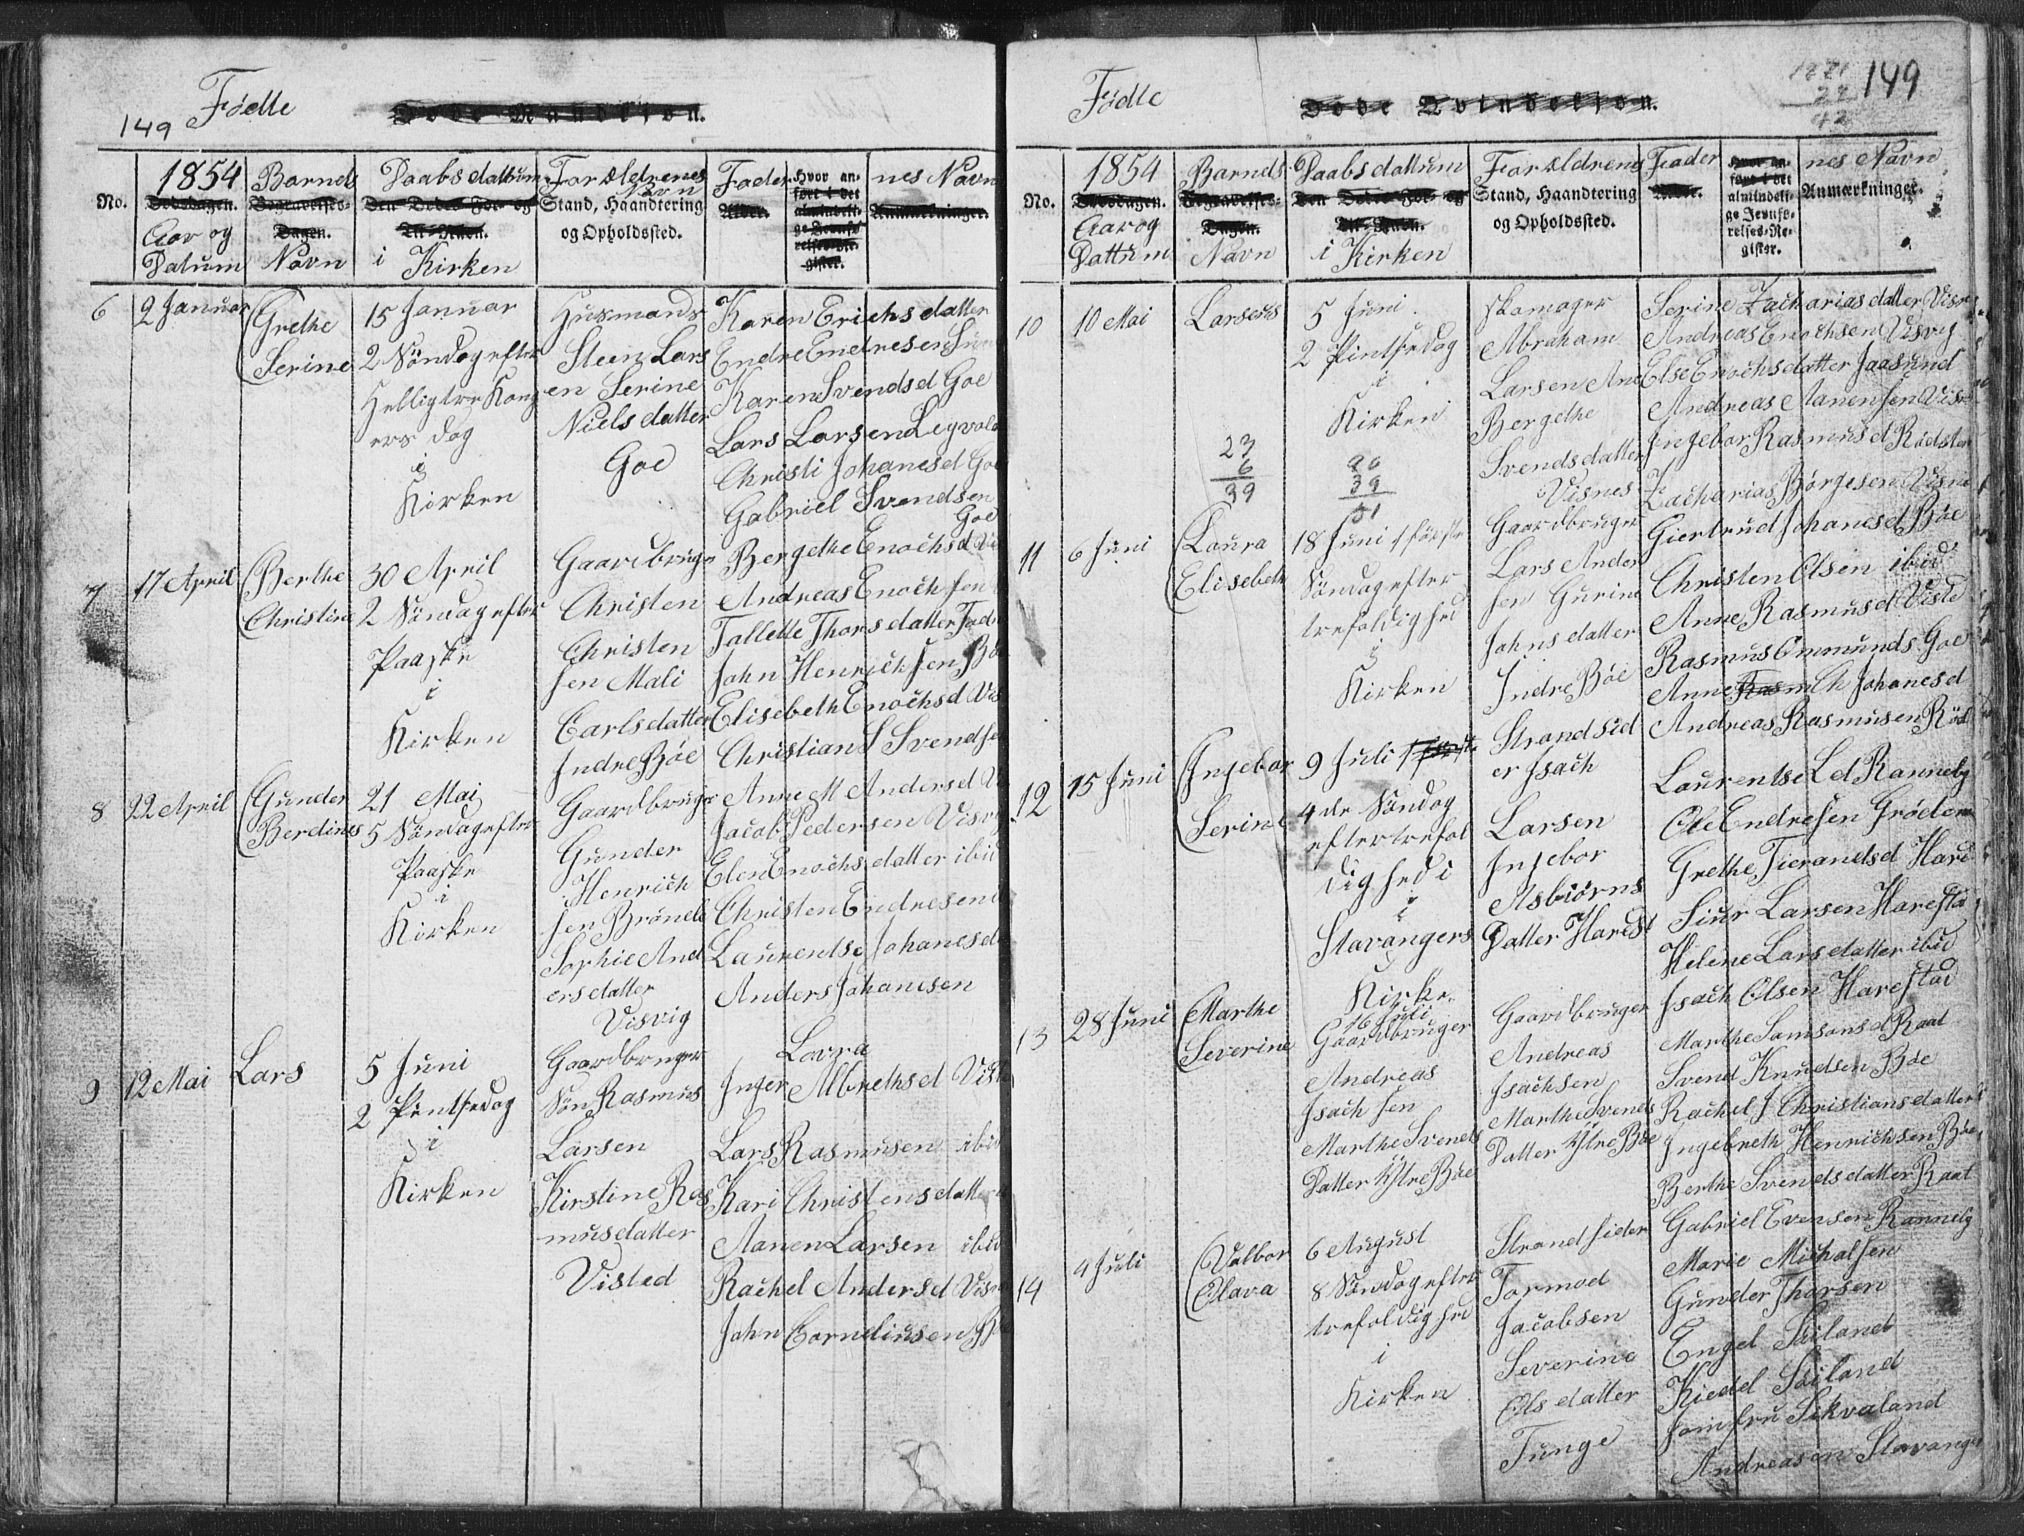 149 Fødte
Døde Mandkjøn.
No.
1854
Dødsdagen.
Aar og
Datum
Barnets
Begravelses-
Dagen.
Navn
Daabsdattum
Den Dødes For- og
Til-Navn.
i Kirken
Forældrenes
Navn
Stand, Haandtering
og Opholdssted.
Fader
Alder.
Hvor an-
ført i det
almindeli-
ge Jevnfø-
relses-Re-
gister.
nes Navn
Anmærkninger.
6
2 Januar
Grethe
Serine
15 Januar
2 Søndag efter
Helligtre Kong
ers dag
i
Kirken
Husmands
Steen Lars
en Serine
Niels datter
Goe
Karen Erichsdatter
Endre Endresen
Karen Svendsd Goe
Lars Larsen
Christi Johanesd Goe
Gabriel Svendsen
Goe
7
17 April
Berthe
Christine
30 April
2 Søndag efter
Paaske
i
Kirken
Gaardbruger
Christen
Christen
sen Mali
Carlsdatter
Indre Bøe
Bergethe Enochsd
Andreas Enochsen
Tallette Thorsdatter
John Henrichsen Bøe
Elisebeth Enochsd Vis
Christian S Svendsen
8
22 April
Gunder
Berdines
21 Mai
5 Søndag efter
Paaske
i
Kirken
Gaardbruger
Gunder
Henrich
sen Brønele
Sophie And
ersdatter
Visvig
Anne M Andersd
Jacob Pedersen Visvig
Elen Enochsdatter ibid
Christen Endresen
Laurentse Johanesd
Anders Johanesen
9
12 Mai
Lars
5 Juni
2 Pintsedag
i
Kirken
Gaardbruger
Søn Rasmus
Larsen
Kirstine Ras
musdatter
Visted
Lovra
Inger Albrethsd Viste
Lars Rasmusen ibid
Kari Christensdatter
Aanen Larsen ibid
Rachel Andersd
John Corneliusen Bøe
Fødte
Døde Qvindekjøn.
1821
27
42
149
No.
1854
Dødsdagen.
Aar og
Dattum
Barnds
Begravelses-
Dagen.
Navn
Daabsdattum
Den Dødes For- og
Til-Navn.
i Kirken
Forældrenes
Stand, Haandtering
og Opholdssted.
Feader
Alder.
Hvor an-
ført i det
almindeli-
ge Jevnfø-
relses-Re-
gister.
nes Navn
Anmærkninger.
10
10 Mai
Larsens
5 Juni
2 Pintsedag
i
Kirken
Skomager
Abraham
Larsen Ane
Bergethe
Svendsdatter
Visnes
Serine Zachariasdatter
Andreas Enochsen Visvig
Else Enochsdatter Jaasund
Andreas Aanensen
Ingebor Rasmusd
Zacharias Børgesen
23
6
39
39
51
11
6 Juni
Laura
Elisebeth
18 Juni første
Søndag efter
trefoldighed
i
Kirken
Gaardbruger
Lars Ander
sen Gurine
Johnsdatter
Indre Bøe
Giertrud Johanesd Bøe
Christen Olsen ibid
Anne Rasmusd Viste
Rasmus Ommunds Goe
Anne Rasm Ch Johanesd
Andreas Rasmusen
12
15 Juni
Ingebor
Serine
9 Juli
4de Søndag
efter trefol
dighed i
i
Stavangers
Kirke
Strandsid
er Isach
Larsen
Ingebor
Asbiørns
Datter Harest
Laurentse Ld Ranneby
Ole Endresen Grødem
Grethe Tierandsd Hare
Siur Larsen Harestad
Helene Larsdatter ibid
Isach Olsen Harestad
13
28 Juni
Marthe
Severine
16 Juli
Gaardbruger
Andreas
Isachsen
Marthe Svends
Datter Ytre Bøe
Gaardbruger
Andreas
Isachsen
Marthe Svends
Datter Ytre Bøe
Marthe Samsonsd Raal
Svend Knudsen Bøe
Rachel J Christiansdatter
Ingebreth Henrichsen Bøe
Berthe Svendsdatter Raal
Gabriel Evensen Ranneby
14
4 Juli
Valbor
Olava
6 August
8 Søndag efter
trefoldighed
i
Kirken
Strandsider
Tormod
Jacobsen
Severine
Olsdatter
Tunge
Marie Michalsen
Gunder Thorsen
Engel Søiland
Kiedel Søiland
Jomfru Sikveland
Andreasen Stavanger